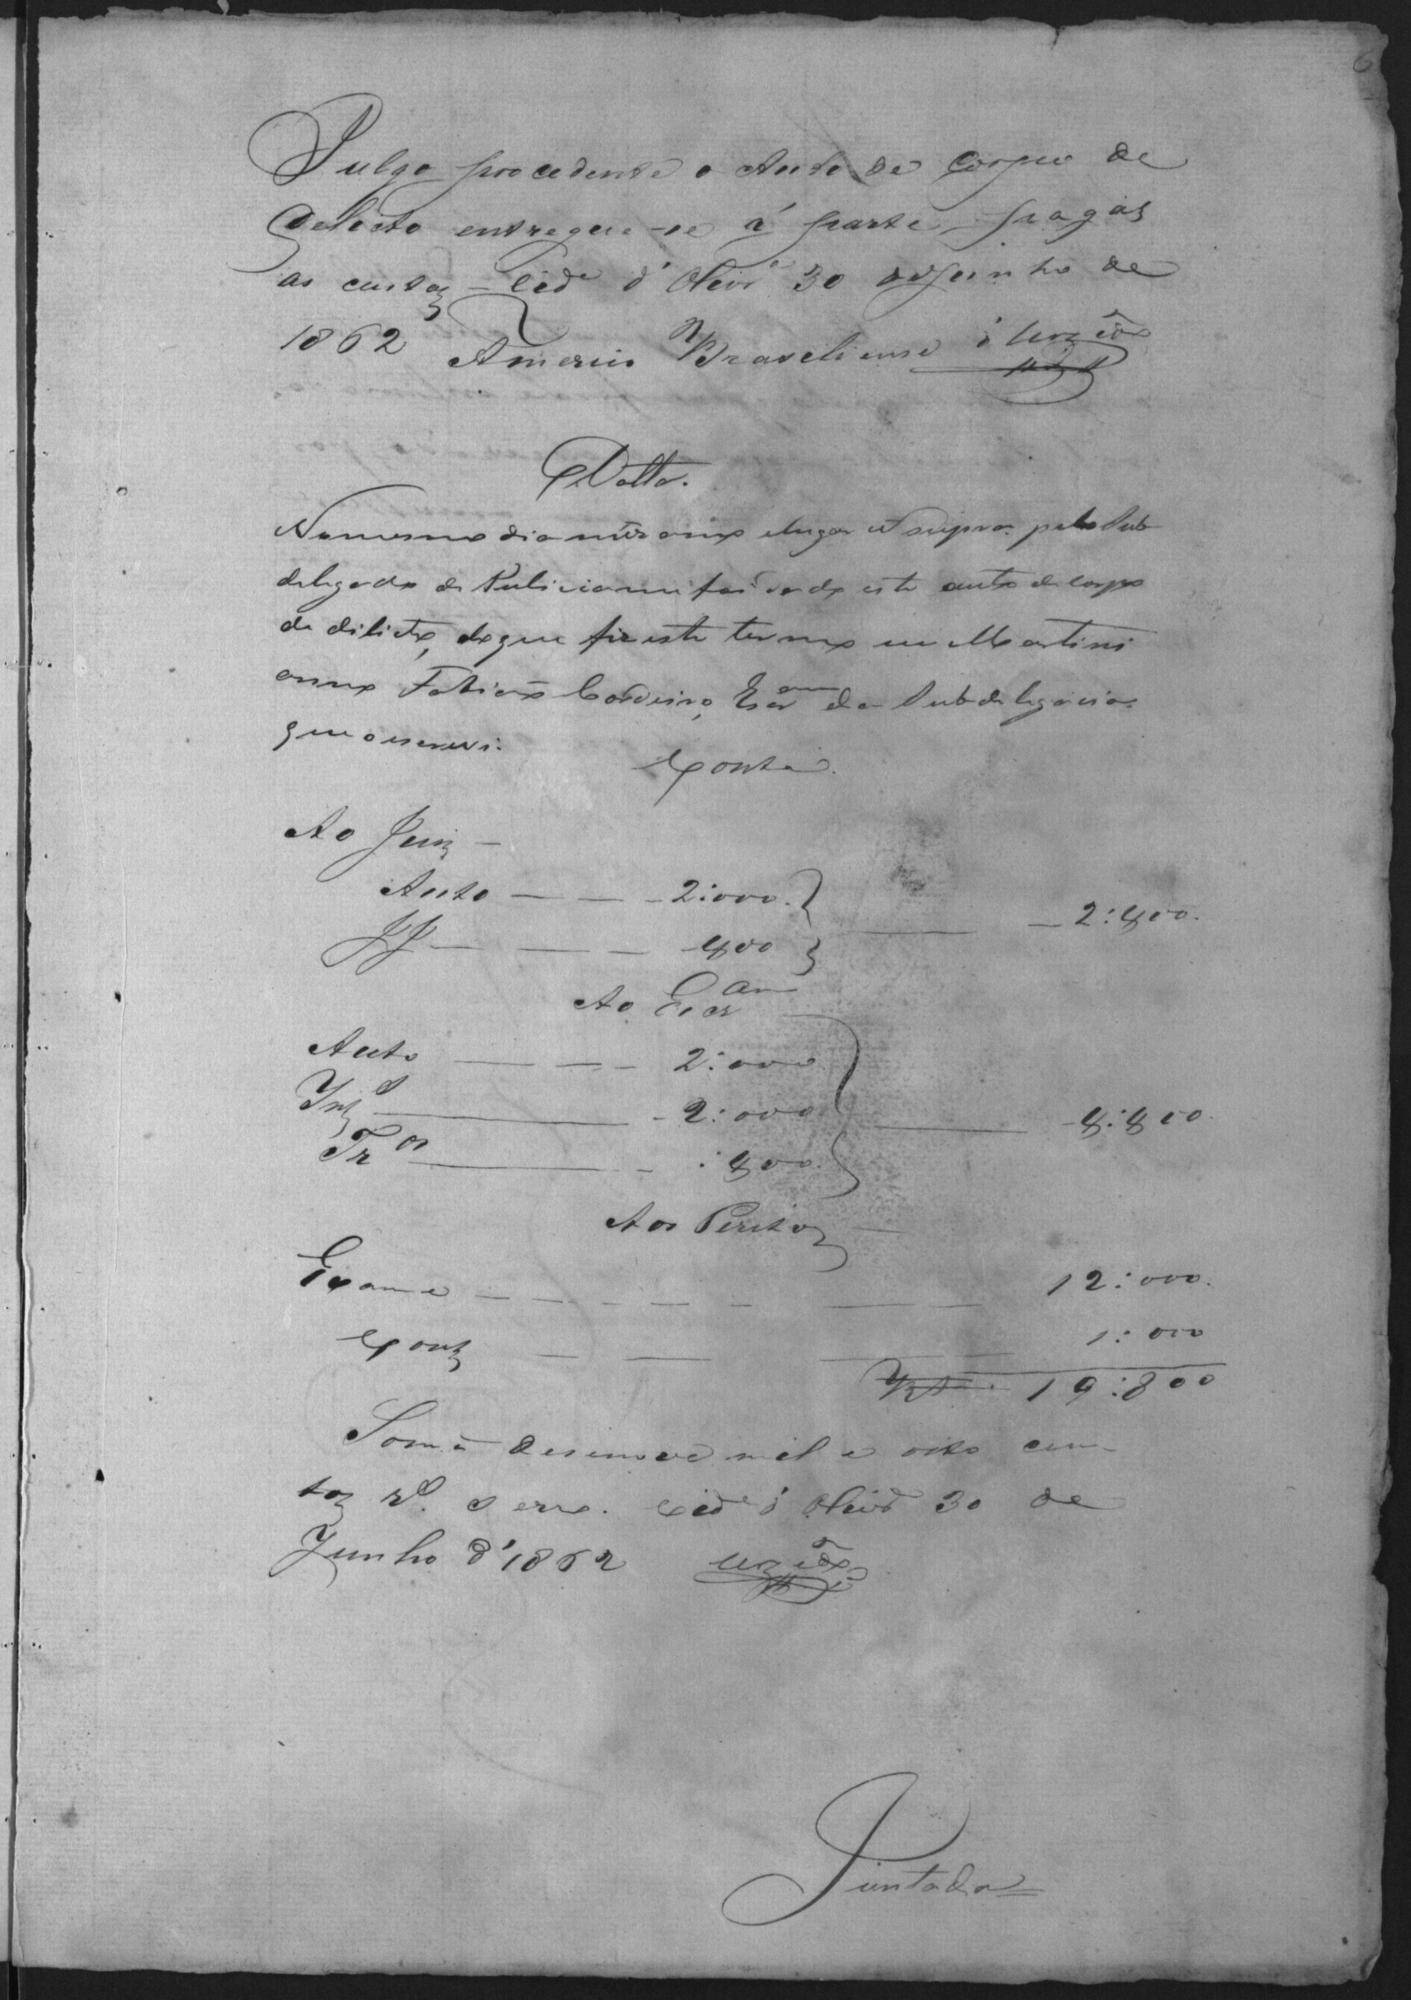 6
Julgo procedente o Auto de Corpo de
delicto entregue-se á parte, pagas
as custas - Cid.e d'Olivr.a 30 de Junho de
1862 Americo Brasiliense
Datta.
No mesmo dia mes anno e lugar ut supra pelo Sub
delegado de Policia me foi dado este auto de corpo
de dilicto, do que fiz este termo eu Martini
anno Fabiaõ Cordeiro, Escr.am da Subdelegacia
que o escrevi.
Conta.
Ao Juiz -
Auto - - - 2:000.
JJ - - - 400 - 2:400.
Ao Escr.am
Auto - - - 2:000
- 2:000 - 4:400.
Tr.os - :400.
Aos Peritos -
Exame - - - - - - 12:000.
Conta - - - 1:000
19:800
Somã desenove mil e oito cen-
tos rs. S erro. Cid.e d'Olivr.a 30 de
Junho d'1862
Juntada